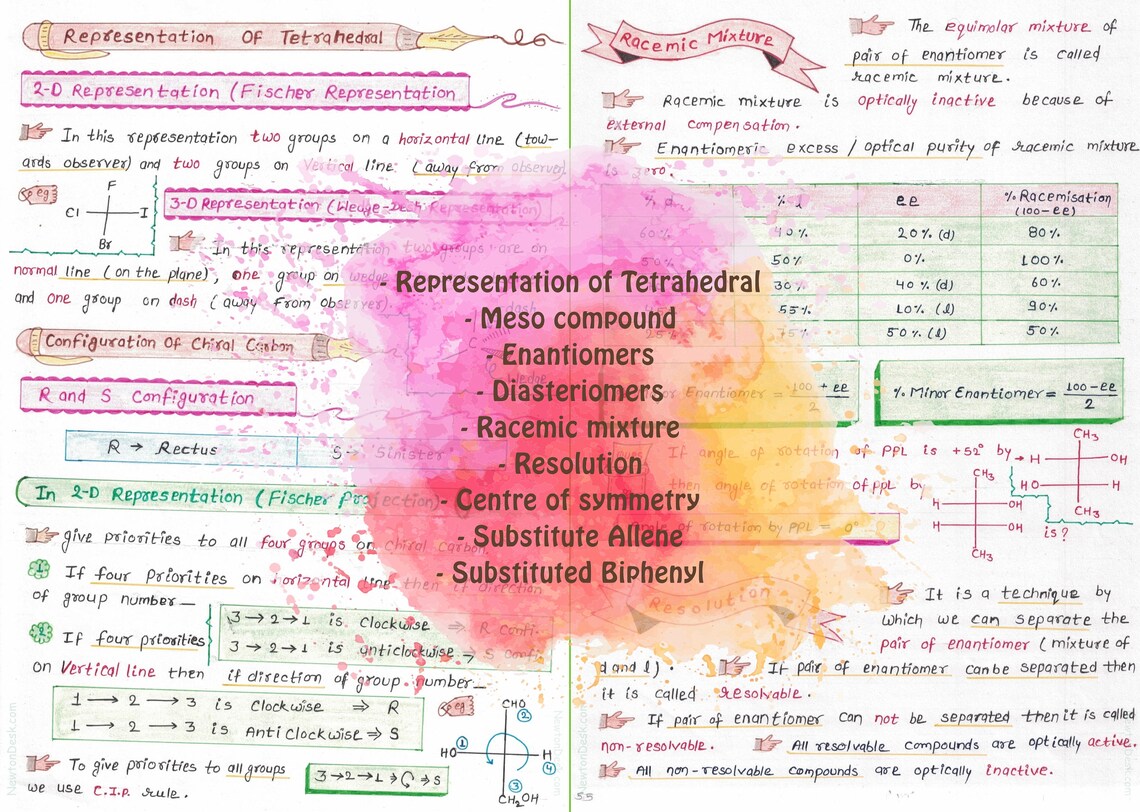 Representation Of Tetrahedral
2-D Representation (Fischer Representation
In this representation two groups on a horizontal line (tow-
ards observer) and two groups on Vertical line: (away from observer)
eg
F
Cl
I
Br
3-D Representation (Wedge-Dash Representation)
In this representation two groups are on
normal line (on the plane), one group on wedge
and one group on dash (away from observer).
Configuration Of Chiral Carbon
R and S Configuration
R → Rectus
S → Sinister
In 2-D Representation (Fischer Projection)
give priorities to all four groups on chiral carbon.
1 If four priorities on horizontal line then if direction
of group number—
3→2→1 is Clockwise ⇒ R Confi.
3→2→1 is anticlockwise → S Confi.
2 If four priorities
on Vertical line then if direction of group number—
1 → 2 → 3 is Clockwise ⇒ R
1 → 2 → 3 is AntiClockwise ⇒ S
To give priorities to all groups
we use C.I.P. rule.
3→2→1 → ⇒ S
eg
CHO
2
HO
1
H
4
3
CH₂OH
NewtonDesk.com
- Representation of Tetrahedral
- Meso compound
- Enantiomers
- Diasteriomers
- Racemic mixture
- Resolution
- Centre of symmetry
- Substitute Allene
- Substituted Biphenyl
Racemic Mixture
The equimolar mixture of
pair of enantiomer is called
racemic mixture.
Racemic mixture is optically inactive because of
external compensation.
Enantiomeric excess / optical purity of racemic mixture
is zero.
% d % l ee % Racemisation
(100-ee)
60% 40% 20% (d) 80%
50% 50% 0% 100%
30% 40% (d) 60%
55% 10% (l) 90%
25% 75% 50% (l) 50%
Enantiomer = 100 + ee
2
% Minor Enantiomer = 100 - ee
2
If angle of rotation of PPL is +52° by
then angle of rotation of ppl by
is?
CH₃
H
OH
HO
H
CH₃
CH₃
H
OH
H
OH
CH₃
Angle of rotation by PPL = 0°
Resolution
It is a technique by
which we can separate the
pair of enantiomer (mixture of
d and l). If pair of enantiomer can be separated then
it is called resolvable.
If pair of enantiomer can not be separated then it is called
non-resolvable. All resolvable compounds are optically active.
All non-resolvable compounds are optically inactive.
55